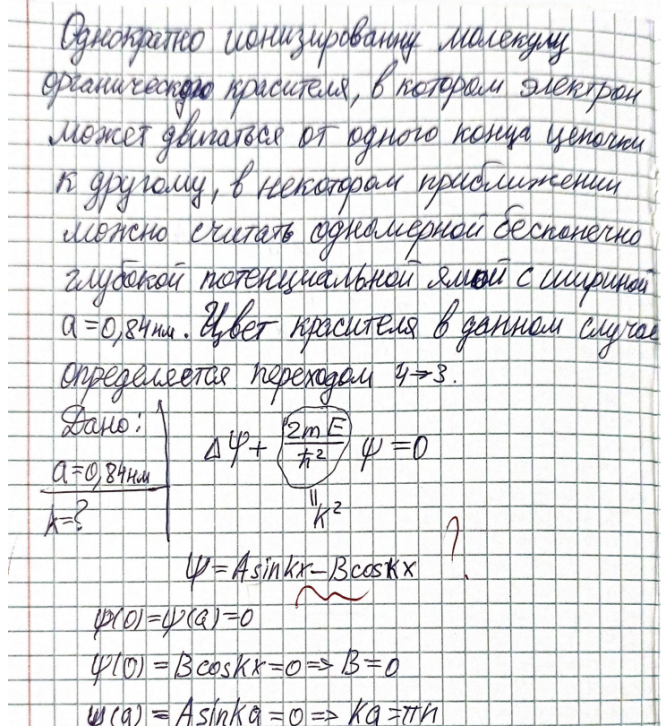 Однократно ионизированну молекулу
органического красителя, в котором электрон
может двигаться от одного конца цепочки
к другому, в некотором приближении
можно считать одномерной бесконечно
глубокой потенциальной ямой с шириной
a = 0,84нм. Цвет красителя в данном случае
определяется переходом 4→3.
Дано:
a=0,84нм
λ=?
Δψ + 2mE/ħ² ψ = 0
k²
ψ = Asinkx – Bcoskx ?
ψ(0)=ψ(a)=0
ψ(0) = Bcoskx=0 => B=0
ψ(a) = Asinka=0 => ka=πn